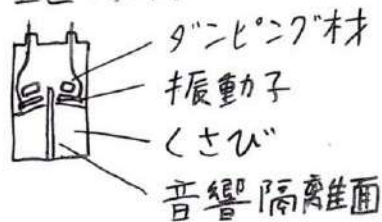 ダンピング材
振動子
くさび
音響隔離面